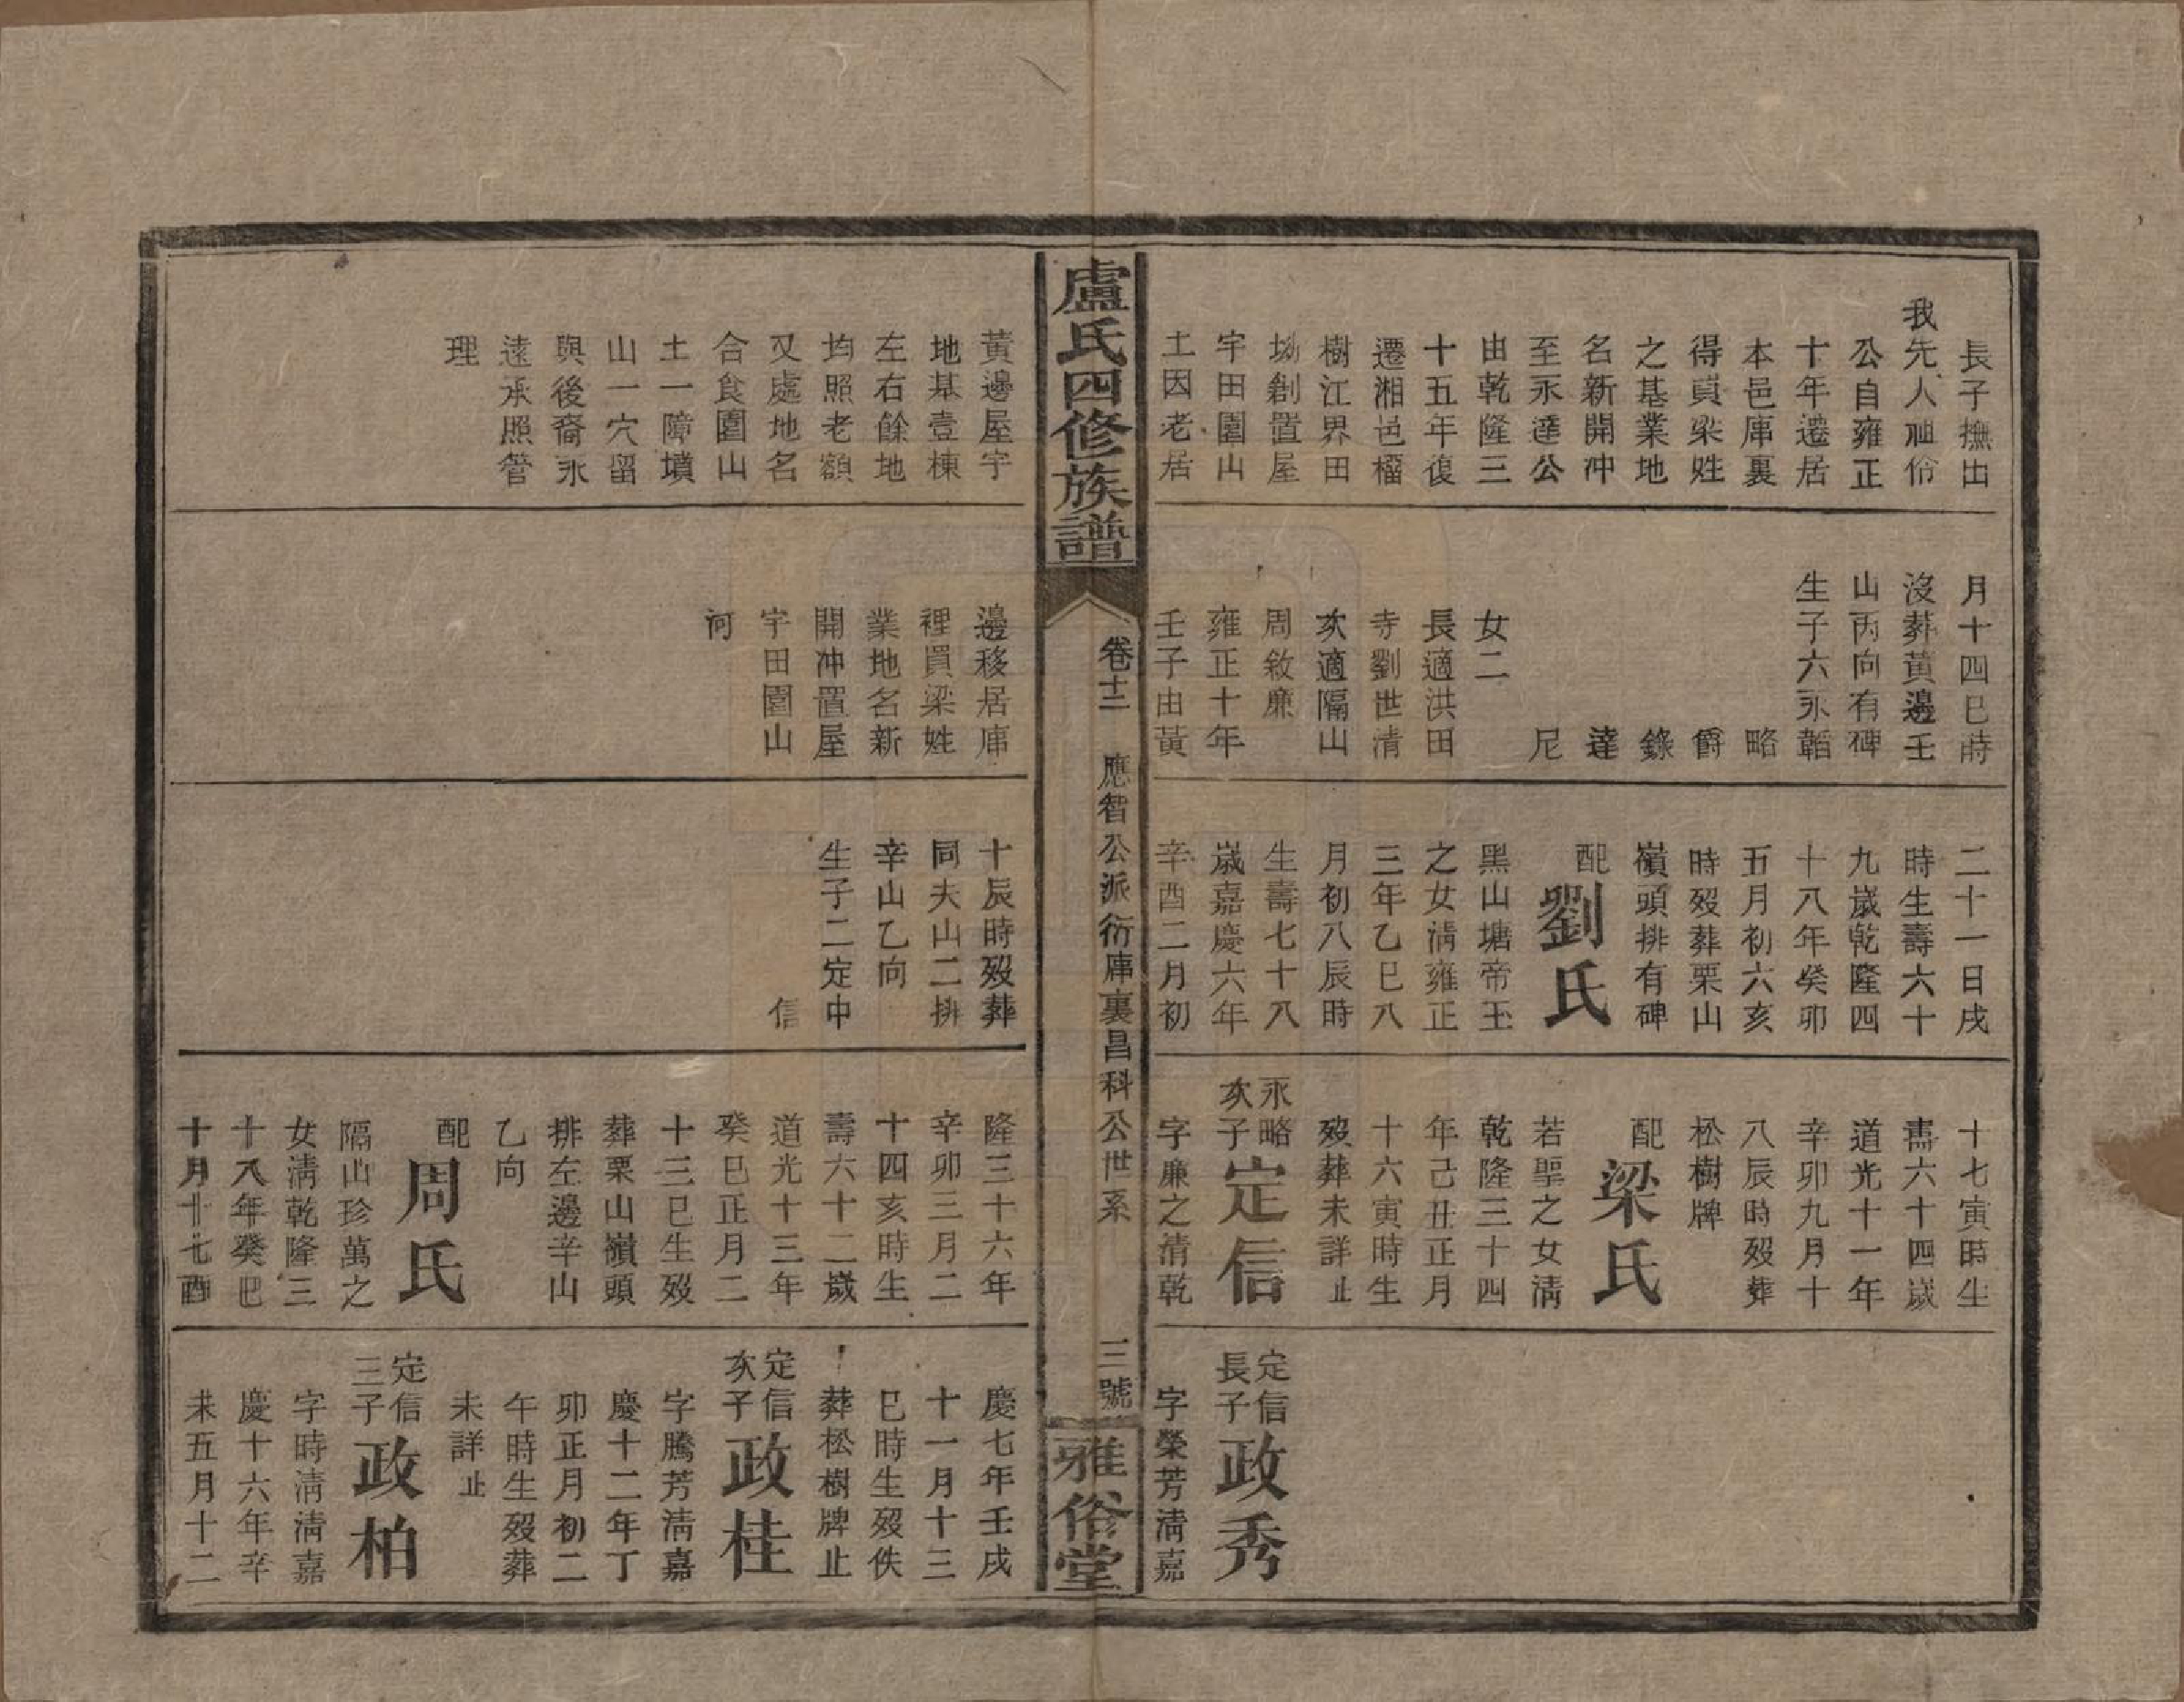 長子撫出
我先人祖伶
公自雍正
十年遷居
本邑庫裏
得買梁姓
之基業地
名新開冲
至永達公
由乾隆三
十五年復
遷湘邑櫺
樹江界田
坳創置屋
宇田園山
土因老居
月十四巳時
沒葬黃邊壬
山丙向有碑
生子六永韜
略
爵
錄
達
尼
女二
長適洪田
寺劉世清
次適隔山
周敘廉
雍正十年
壬子由黃
二十一日戌
時生壽六十
九歲乾隆四
十八年癸卯
五月初六亥
時歿葬栗山
嶺頭排有碑
配劉氏
黑山塘帝玉
之女清雍正
三年乙巳八
月初八辰時
生壽七十八
歲嘉慶六年
辛酉二月初
十七寅時生
壽六十四歲
道光十一年
辛卯九月十
八辰時歿葬
松樹牌
配梁氏
若聖之女清
乾隆三十四
年己丑正月
十六寅時生
歿葬未詳止
永略次子定信
字廉之清乾
定信長子政秀
字榮芳清嘉
盧氏四修族譜
卷十二
應智公派衍庫裏昌科公世系
三號
雅俗堂
黃邊屋宇
地基壹棟
左右餘地
均照老額
又處地名
合食園山
土一障墳
山一穴留
與後裔永
遠承照管
理
邊移居庫
裡買梁姓
業地名新
開冲置屋
宇田園山
河
十辰時歿葬
同夫山二排
辛山乙向
生子二定中
信
隆三十六年
辛卯三月二
十四亥時生
壽六十二歲
道光十三年
癸巳正月二
十三巳生歿
葬栗山嶺頭
排左邊辛山
乙向
配周氏
隔山珍萬之
女清乾隆三
十八年癸巳
十月十七酉
慶七年壬戌
十一月十三
巳時生歿佚
葬松樹牌止
定信次子政桂
字騰芳清嘉
慶十二年丁
卯正月初二
午時生歿葬
未詳止
定信三子政柏
字時清清嘉
慶十六年辛
未五月十二